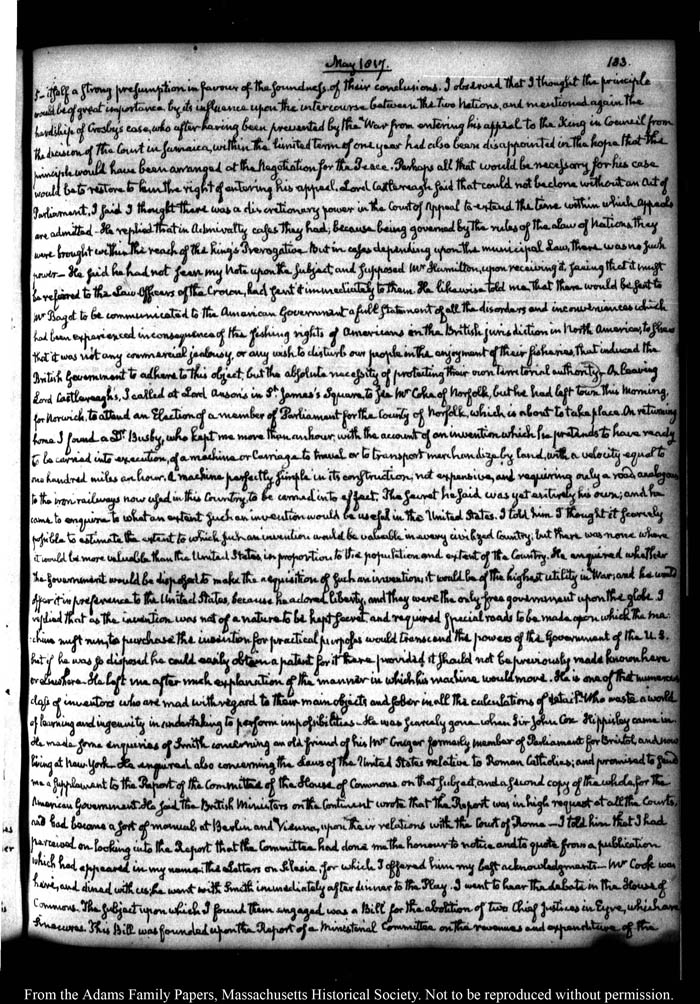 May 1817.
183.
5 - itself a strong presumption in favour of the soundness of their conclusions. I observed that I thought the principle
would be of great importance by its influence upon the intercourse between the two Nations, and mentioned again the
hardship of Crosby's case, who after having been prevented by the War from entering his appeal to the King in Council from
the decision of the Court in Jamaica, within the limited term of one year had also been disappointed in the hope that the
principle would have been arranged at the Negotiation for the Peace. Perhaps all that would be necessary for his case
would be to restore to him the right of entering his appeal. Lord Castlereagh said that could not be done without an Act of
Parliament, I said I thought there was a discretionary power in the Court of Appeal to extend the time within which appeals
are admitted - He replied that in Admiralty cases they had; because being governed by the rules of the Law of Nations they
were brought within the reach of the King's Prerogative. But in cases depending upon the municipal Law, there was no such
power - He said he had not seen my Note upon the subject, and supposed Mr Hamilton, upon receiving it, seeing that it must
be referred to the Law Officers of the Crown, had sent it immediately to them. He likewise told me that there would be sent to
Mr Bagot to be communicated to the American Government a full Statement of all the disorders and inconveniences which
had been experienced in consequence of the fishing rights of Americans on the British jurisdiction in North America, to shew
that it was not any commercial jealousy, or any wish to disturb our people in the enjoyment of their fisheries, that induced the
British Government to adhere to this object, but the absolute necessity of protecting their own territorial authority. On leaving
Lord Castlereagh's, I called at Lord Anson's in St. James's Square, to see Mr Coke of Norfolk, but he had left town this morning,
for Norwich, to attend an Election of a member of Parliament for the County of Norfolk, which is about to take place. On returning
home I found a Dr. Busby, who kept me more than an hour, with the account of an invention which he pretends to have ready
to be carried into execution, of a machine or Carriage to travel or to transport merchandize by land, with a velocity equal to
one hundred miles an hour. A machine perfectly simple in its construction, not expensive, and requiring only a road analogous
to the iron railways now used in this Country, to be carried into effect. The Secret he said was yet entirely his own; and he
came to enquire to what an extent such an invention would be useful in the United States. I told him I thought it scarcely
possible to estimate the extent to which such an invention would be valuable in every civilized Country; but there was none where
it would be more valuable than the United States, in proportion to the population and extent of the Country. He enquired whether
the Government would be disposed to make the acquisition of such an invention; it would be of the highest utility in War; and he would
offer it in preference to the United States, because he adored liberty, and they were the only free government upon the globe. I
replied that as the invention was not of a nature to be kept secret, and required special roads to be made upon which the ma-
chine must run, to purchase the invention for practical purposes would transcend the powers of the Government of the U.S.
but if he was so disposed he could easily obtain a patent for it there, provided it should not be previously made known here
or elsewhere. He left me after much explanation of the manner in which his machine would move. He is one of that numerous
class of inventors who are mad with regard to their main object, and sober in all the calculations of detail. Who waste a world
of learning and ingenuity in undertaking to perform impossibilities - He was scarcely gone when Sir John Cox Hippisley came in.
He made some enquiries of Smith concerning an old friend of his Mr Cruger formerly member of Parliament for Bristol, and now
living at New York. He enquired also concerning the Laws of the United States relative to Roman Catholics; and promised to send
me a Supplement to the Report of the Committee of the House of Commons on that subject, and a second copy of the whole, for the
American Government. He said the British Ministers on the Continent wrote that the Report was in high request at all the Courts,
and had become a sort of manual, at Berlin and Vienna, upon their relations with the Court of Rome - I told him that I had
perceived on looking into the Report that the Committee had done me the honour to notice and to quote from a publication
which had appeared in my name. The Letters on Silesia, for which I offered him my best acknowledgments - Mr Cook was
here, and dined with us; he went with Smith immediately after dinner to the Play. I went to hear the debate in the House of
Commons. The subject upon which I found them engaged was a Bill for the abolition of two Chief Justices in Eyre, which are
Sinecures. This Bill was founded upon the Report of a Ministerial Committee on the revenues and expenditure of the
From the Adams Family Papers, Massachusetts Historical Society. Not to be reproduced without permission.